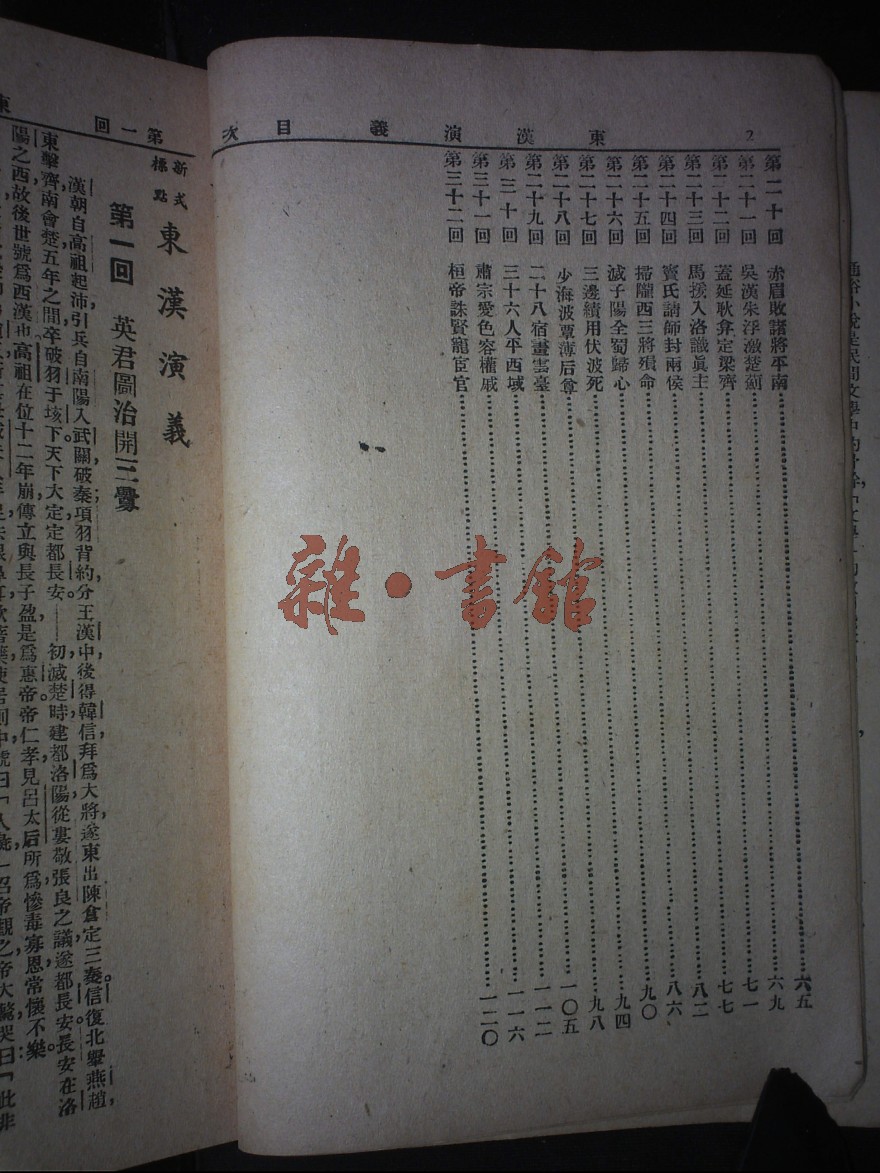 2 東漢演義目次
第二十回 赤眉敗諸將平南……六五
第二十一回 吳漢朱浮激楚薊……六九
第二十二回 蓋延耿弇定梁齊……七一
第二十三回 馬援入洛識眞主……七七
第二十四回 竇氏請師封兩侯……八二
第二十五回 掃隴西三將殞命……八六
第二十六回 滅子陽全蜀歸心……九〇
第二十七回 三邊續用伏波死……九四
第二十八回 少海波覃薄后尊……九八
第二十九回 二十八宿畫雲臺……一〇五
第三十回 三十六人平西域……一一二
第三十一回 肅宗愛色容權戚……一一六
第三十二回 桓帝誅賢寵宦官……一二〇
第一回 東
新式標點 東漢演義
第一回 英君圖治開三釁
漢朝自高祖起沛,引兵自南陽入武關破秦,項羽背約,分王漢中,後得韓信,拜爲大將,遂東出陳倉,定三秦。信復北舉燕趙,
東擊齊,南會楚,五年之間,卒破羽于垓下,天下大定,定都長安。——初滅楚時,建都洛陽,從婁敬張良之議,遂都長安。長安在洛
陽之西,故後世號爲西漢也。高祖在位十二年崩,傳立與長子盈,是爲惠帝。帝仁孝,見呂太后所爲慘毒寡恩,常懷不樂
雜·書館